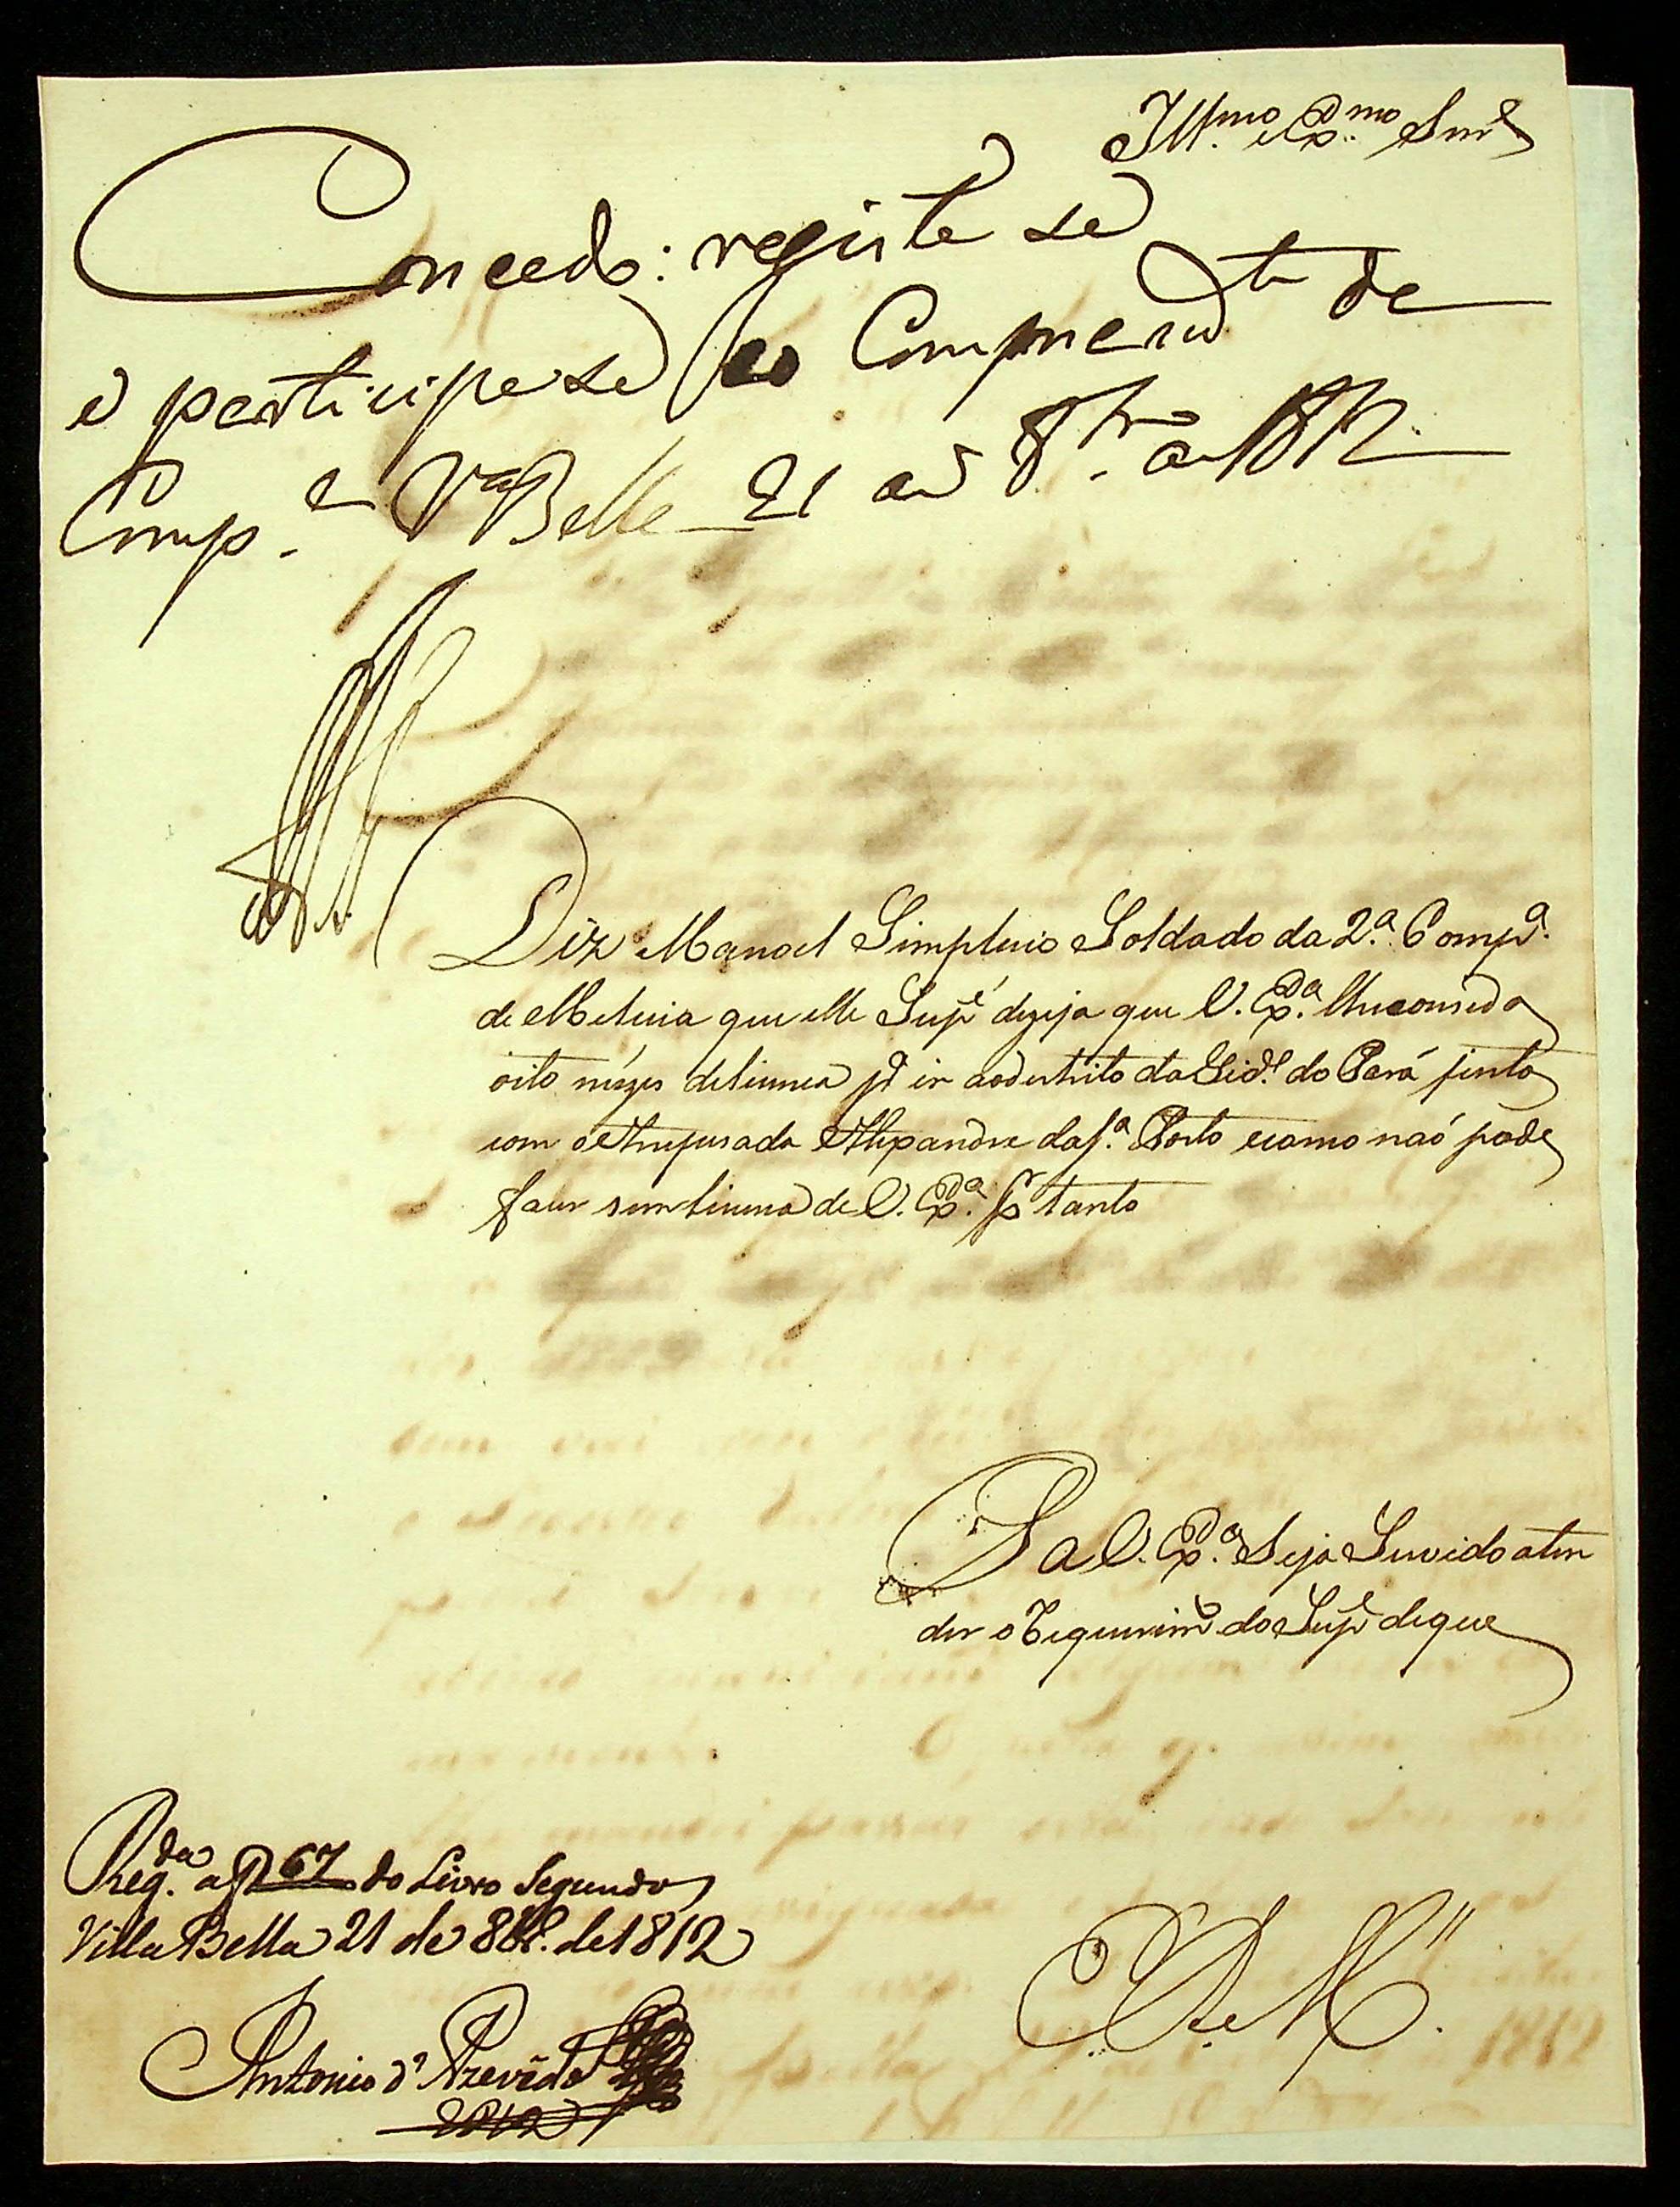 Ill.mo e Ex.mo Snr
Concedo: registe se
e participe se ao Comend.te de
Comp.a V.a Bella 21 de 8br.o de 1812
Diz Manoel Simplicio Soldado da 2.ª Comp.ª
de Melicia que elle Supe dezeja que V. Ex.ª lhe conseda
oito mezes de licença p.ª ir ao destrito da Cid.e do Pará junto
com o Alexandre da S.ª Porto e como naó pode
fazer sem licença de V. Ex.ª P tanto
P a V. Ex.ª Seja Servido aten
der o Requerim.to do Sup.e de que
E. R. M.
Reg.da a f 67 do Livro Segundo
Villa Bella 21 de 8br.o de 1812
Antonio d'Azevedo